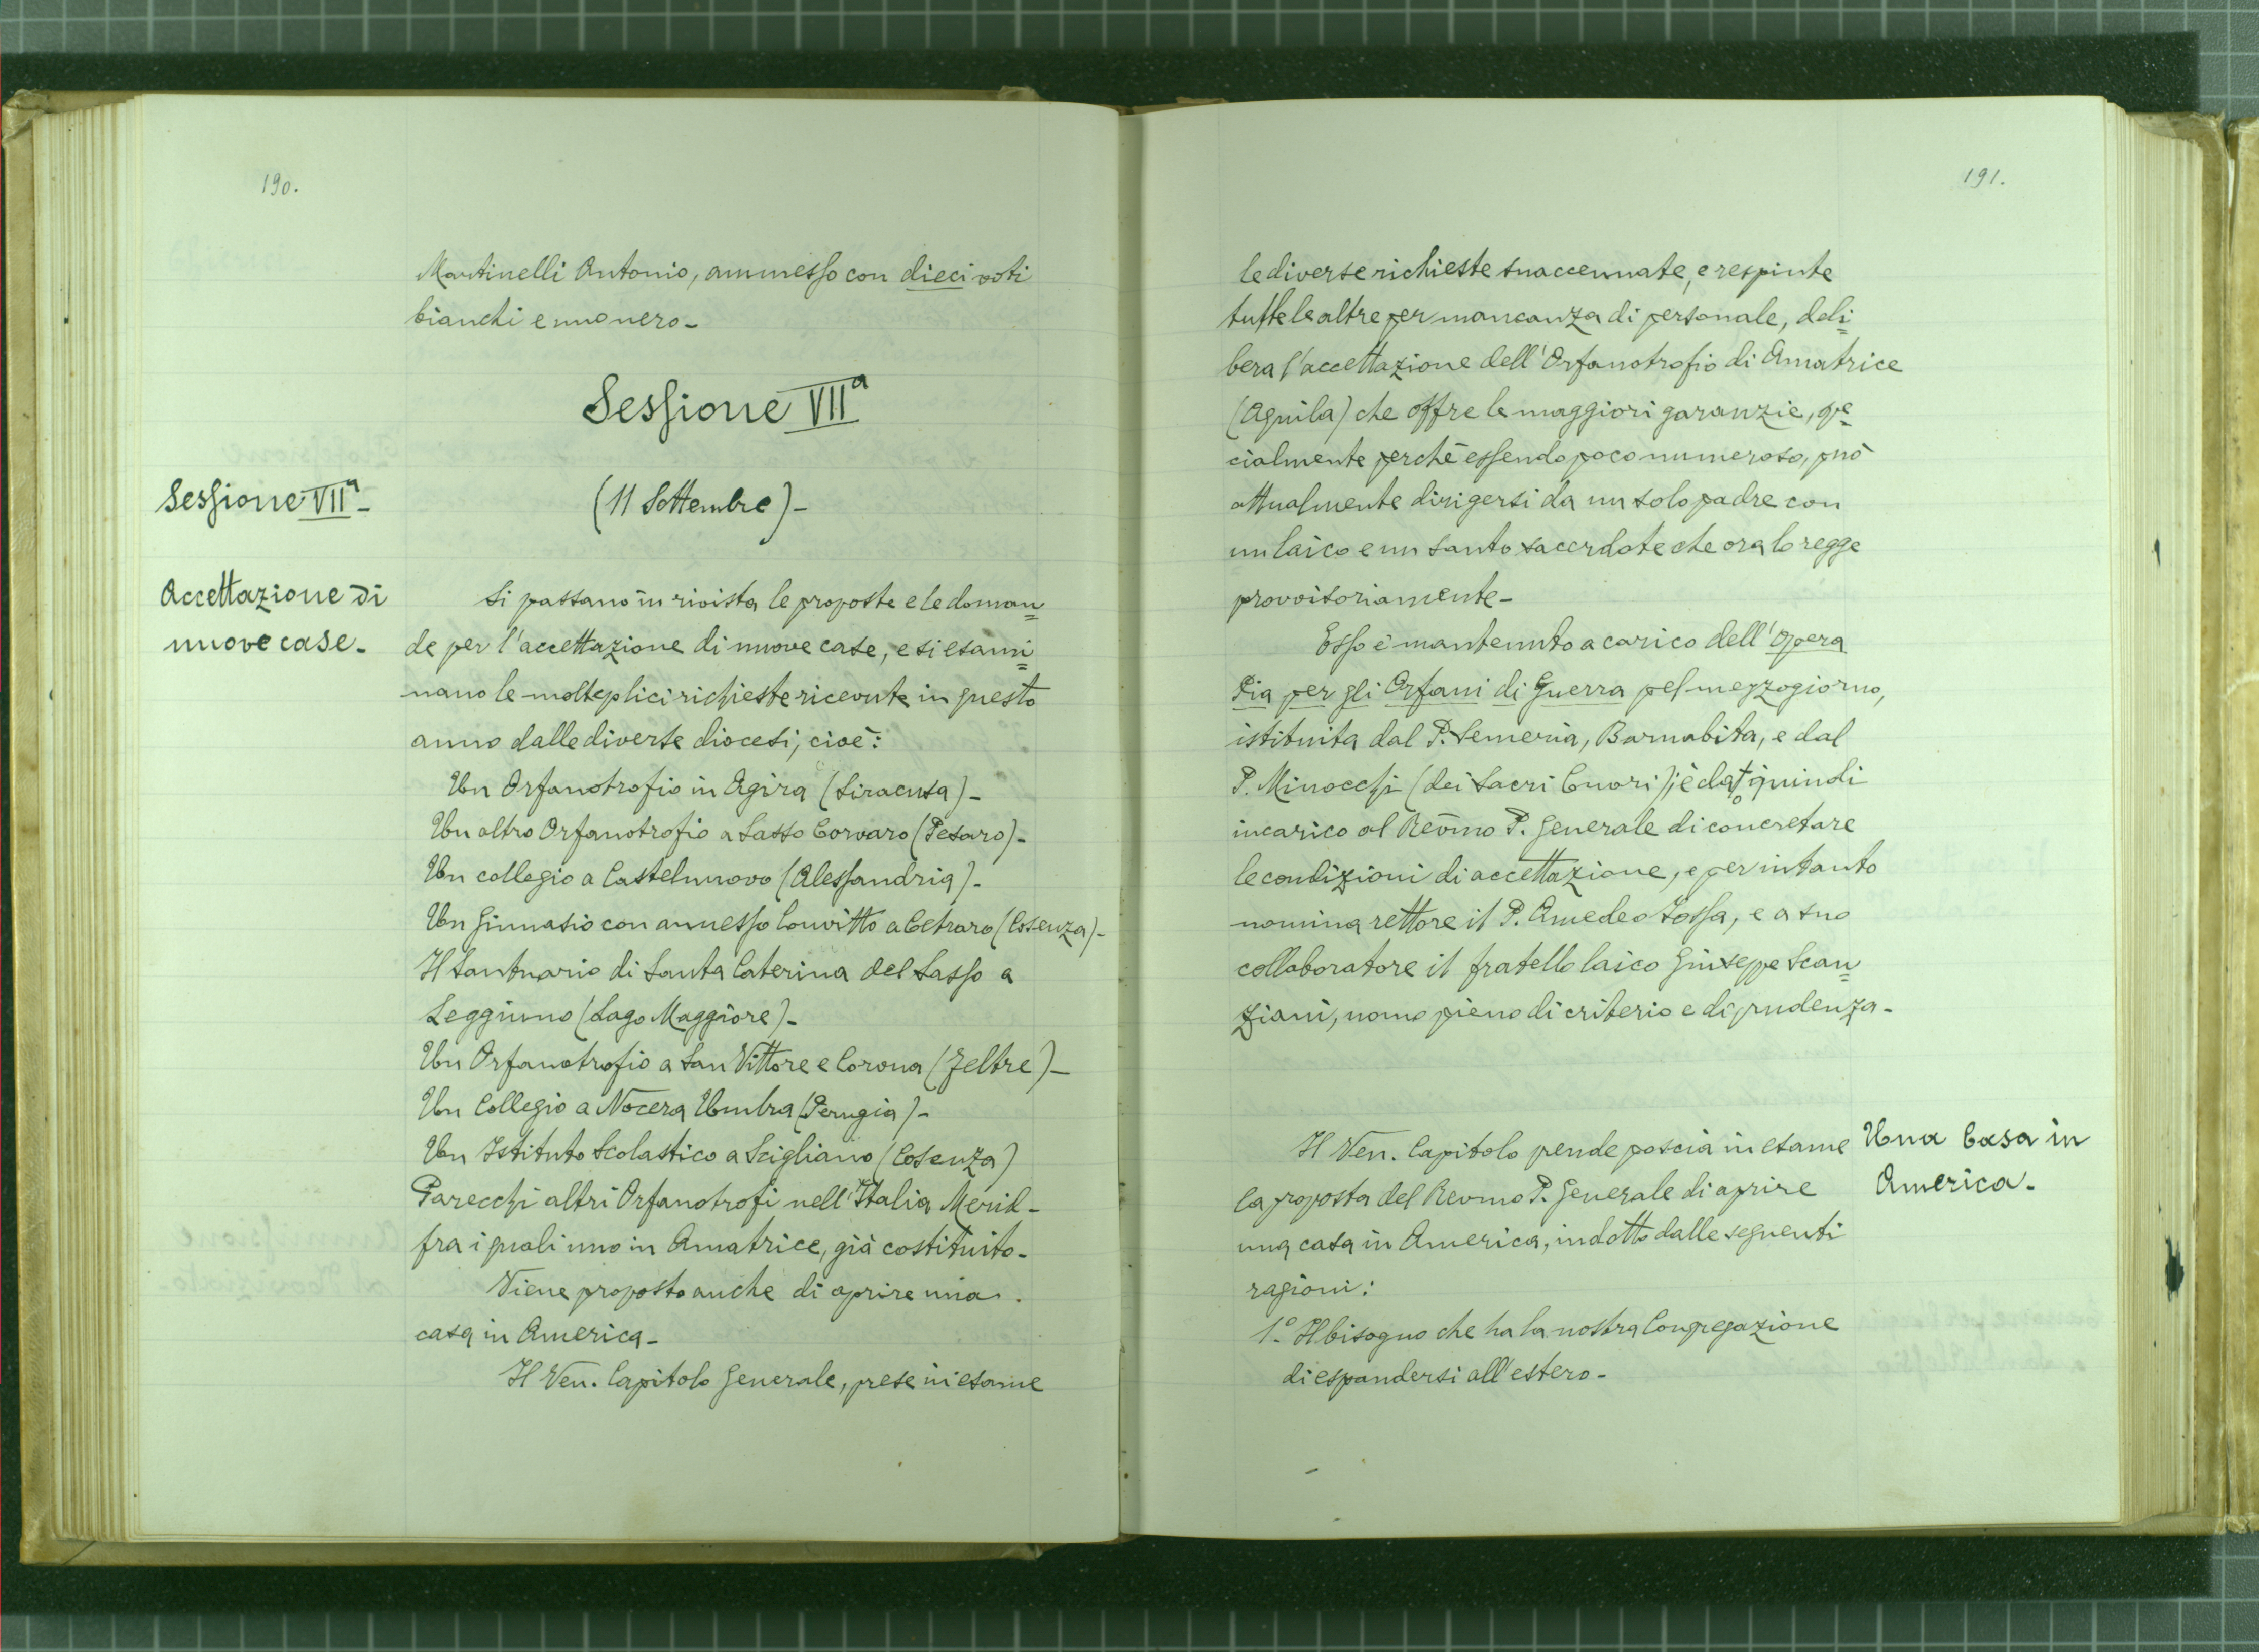 190.
Martinelli Antonio, ammesso con dieci voti
bianchi e uno nero-
Sessione VIIª
Sessione VIIª-
(11 Settembre)-
Accettazione di
nuove case-
Si passano in rivista le proposte e le doman=
de per l'accettazione di nuove case, e si esami=
nano le molteplici richieste ricevute in questo
anno dalle diverse diocesi, cioè:
Un Orfanotrofio in Agira (Siracusa)-
Un altro Orfanotrofio a Sasso Corvaro (Pesaro)-
Un collegio a Castelnuovo (Alessandria)-
Un Ginnasio con annesso Convitto a Cetraro (Cosenza)-
Il Santuario di Santa Caterina del Sasso a
Leggiuno (Lago Maggiore)-
Un Orfanotrofio a San Vittore e Corona (Feltre)-
Un Collegio a Nocera Umbra (Perugia)-
Un Istituto Scolastico a Scigliano (Cosenza)
Parecchi altri Orfanotrofi nell'Italia Merid-
fra i quali uno in Amatrice, già costituito-
Viene proposto anche di aprire una
casa in America-
Il Ven. Capitolo Generale, prese in esame
191.
le diverse richieste suaccennate, e respinte
tutte le altre per mancanza di personale, deli=
bera l'accettazione dell'Orfanotrofio di Amatrice
(Aquila) che offre le maggiori garanzie, spe=
cialmente perchè essendo poco numeroso, può
attualmente dirigersi da un solo padre con
un laico e un santo sacerdote che ora lo regge
provvisoriamente-
Esso è mantenuto a carico dell'Opera
Pia per gli Orfani di Guerra pel mezzogiorno,
istituita dal P. Semeria, Barnabita, e dal
P. Minocchi (dei Sacri Cuori); è dato quindi
incarico al Rev̄mo P. Generale di concretare
le condizioni di accettazione, e per intanto
nomina rettore il P. Amedeo Jossa, e a suo
collaboratore il fratello laico Giuseppe Scan=
ziani, uomo pieno di criterio e di prudenza-
Il Ven. Capitolo prende poscia in esame
la proposta del Revmo P. Generale di aprire
una casa in America, indotto dalle seguenti
ragioni:
1.° Il bisogno che ha la nostra Congregazione
di espandersi all'estero-
Una Casa in
America-